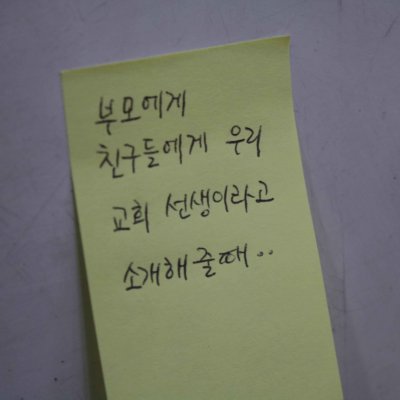 부모에게
친구들에게 우리
교회 선생이라고
소개해 줄때..